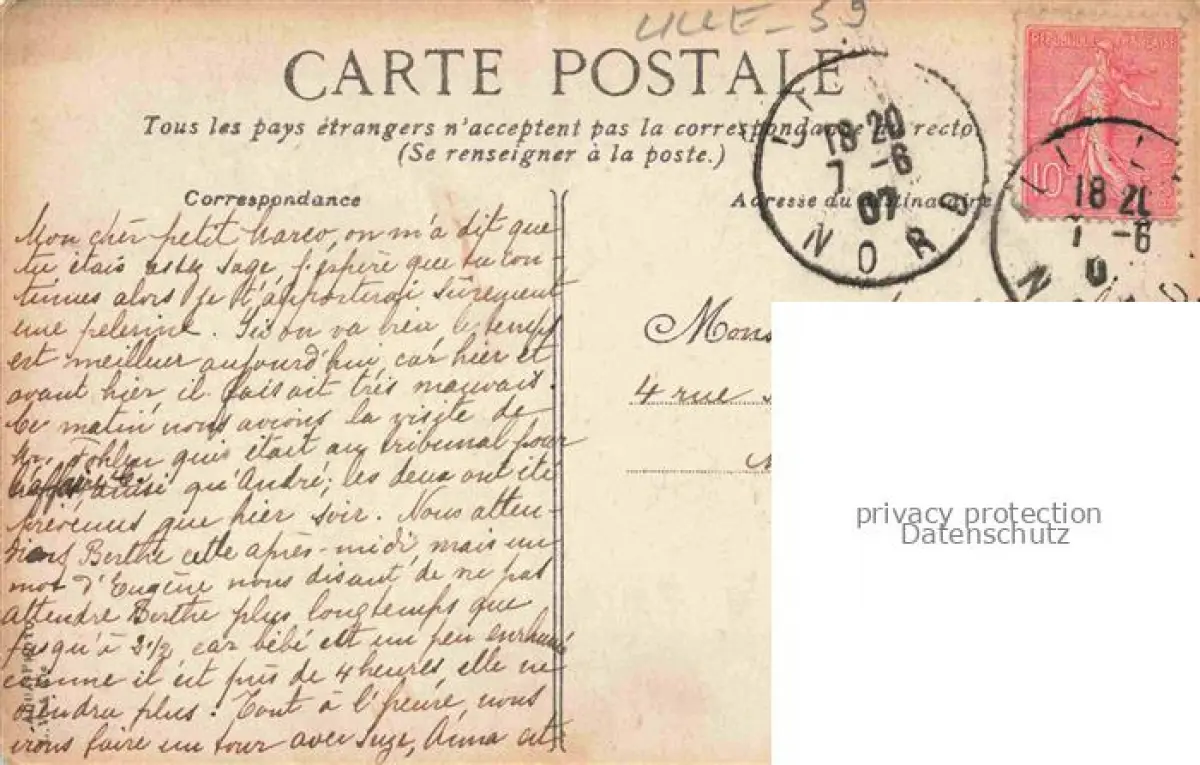 LILLE - 59
CARTE POSTALE
Tous les pays étrangers n'acceptent pas la correspondance au recto.
(Se renseigner à la poste.)
Correspondance
Adresse du destinataire
RÉPUBLIQUE FRANÇAISE
10c
LILLE
18 20
7 -6
07
NORD
18 20
7 -6
0
N
Mon cher petit Marco, on m'a dit que
tu étais assez sage, j'espère que tu con-
tinues alors je t'apporterai sûrement
une pelerine. Ici on va bien le temps
est meilleur aujourd'hui, car hier et
avant hier il faisait très mauvais.
Ce matin nous avions la visite de
qui était au tribunal pour
ainsi qu'André; les deux ont été
prévenus que hier soir. Nous atten-
dions Berthe cette après-midi, mais un
mot d'Eugène nous disant de ne pas
attendre Berthe plus longtemps que
jusqu'à 2 1/2 car bébé est un peu enrhumé
comme il est près de 4 heures, elle ne
viendra plus. Tout à l'heure, nous
irons faire un tour avec Suze, Anna et
Mons
4 rue
privacy protection
Datenschutz